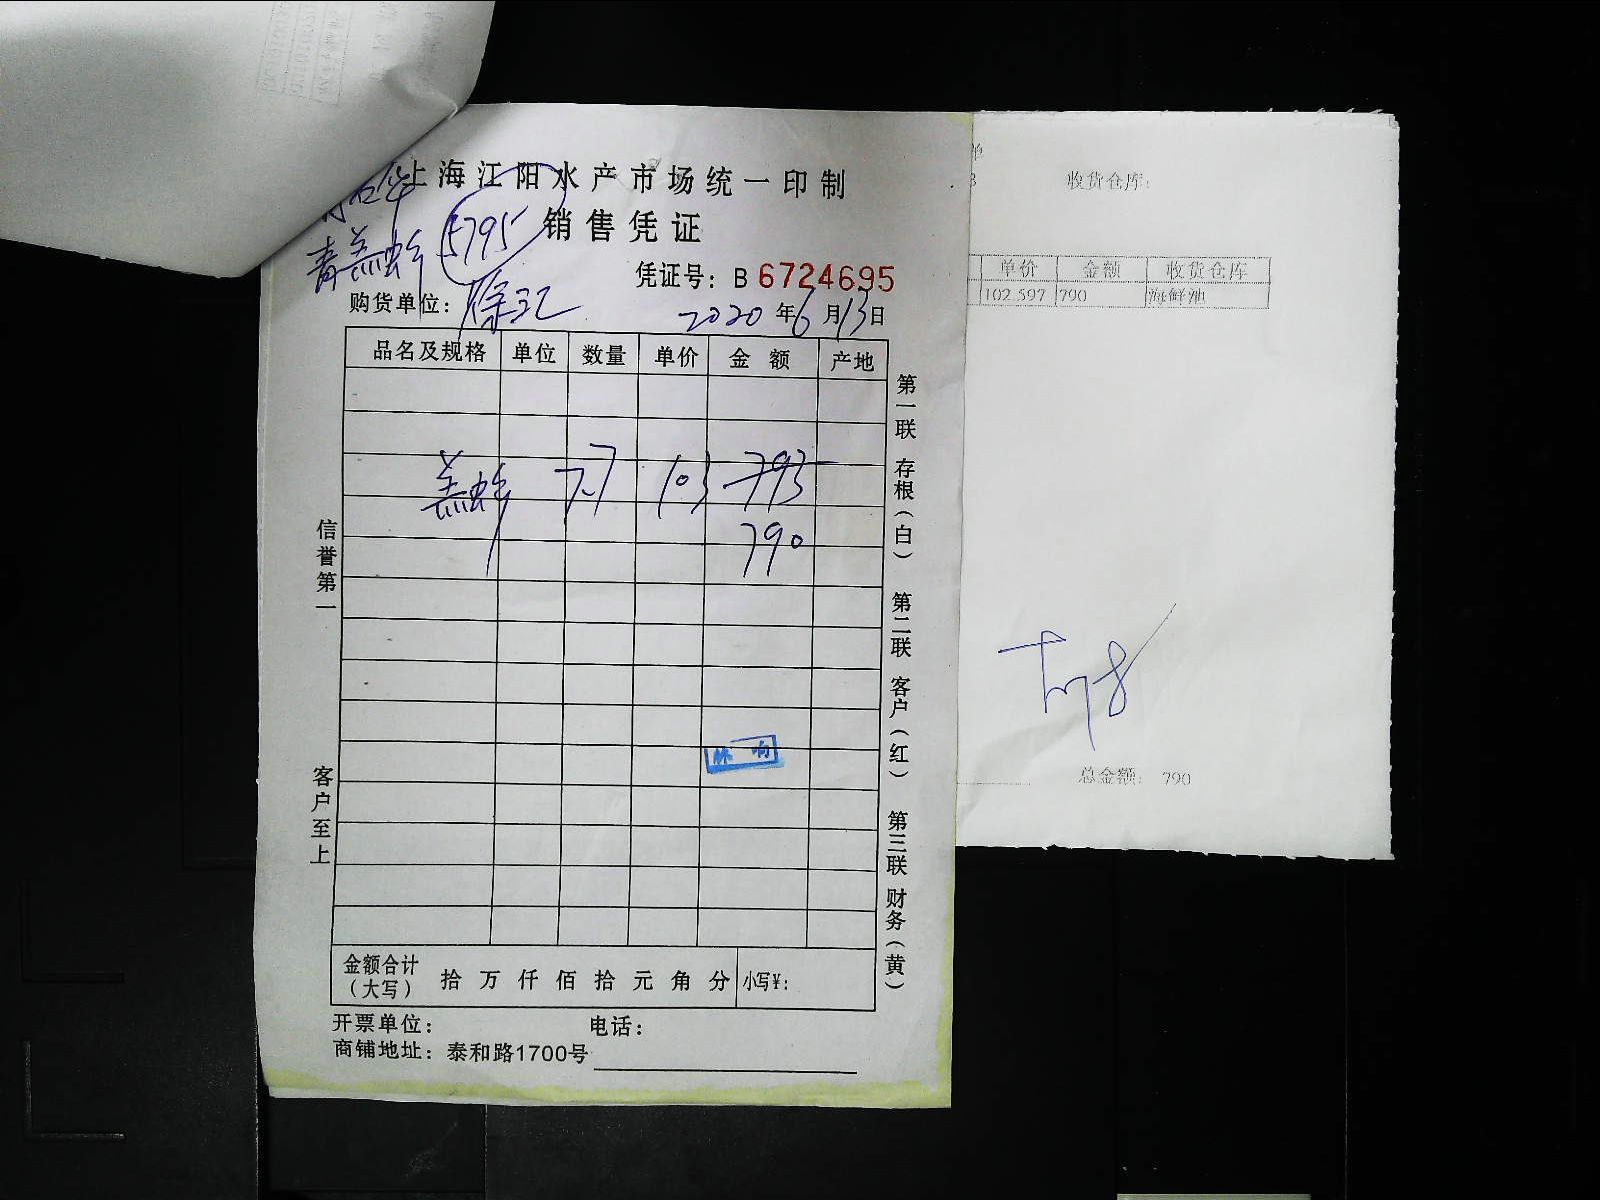 上海江阳水产市场统一印制
青羔虾 5795
销售凭证
凭证号: B 6724695
购货单位: 徐汇
2020年6月13日
品名及规格 单位 数量 单价 金额 产地
羔虾 7.7 103 793
790
信誉第一
客户至上
第一联 存根(白) 第二联 客户(红) 第三联 财务(黄)
金额合计(大写) 拾 万 仟 佰 拾 元 角 分 小写¥:
开票单位: 电话:
商铺地址: 泰和路1700号
单
收货仓库:
单价 金额 收货仓库
102.597 790 海鲜池
总金额: 790